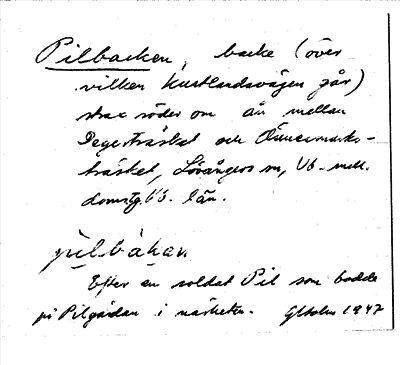 Pilbacken, backe (över
vilken Kustlandsvägen går)
strax söder om ån mellan
Degerträsket och
träsket, Lövångers sn, Vb. mell.
domsg. Vb. län.
pilbàkan
Efter en soldat Pil som bodde
på Pilgårdan i närheten. 1947